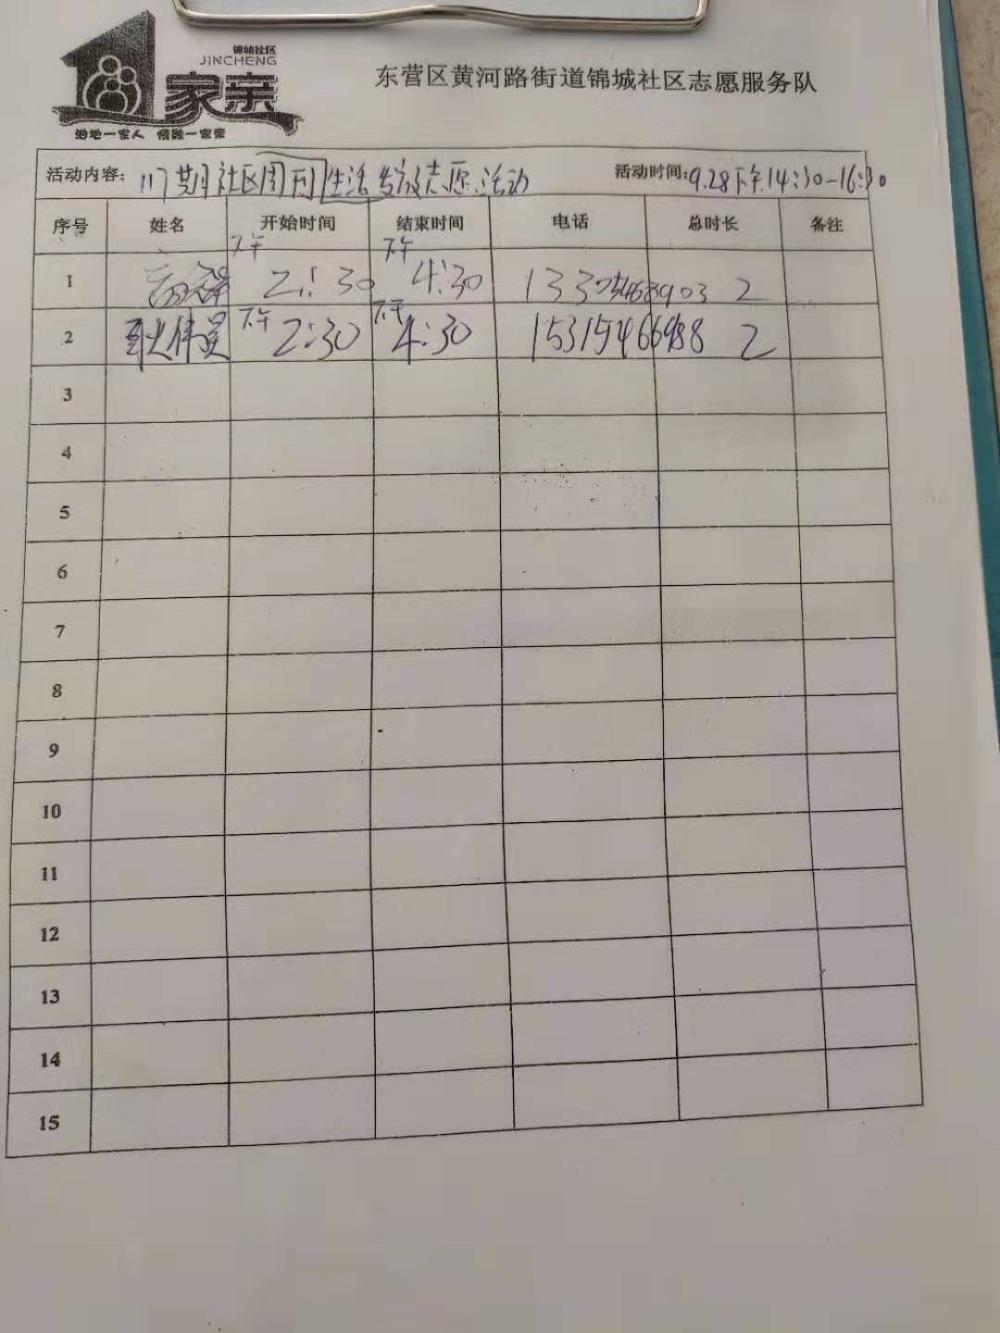 锦城社区
JINCHENG
家亲
东营区黄河路街道锦城社区志愿服务队
活动内容: 117期社区周刊生活 志愿活动 活动时间:9.28下午14:30-16:30
序号 姓名 开始时间 结束时间 电话 总时长 备注
1 下午2:30 下午4:30 2
2 下午2:30 下午4:30 15315466988 2
3
4
5
6
7
8
9
10
11
12
13
14
15